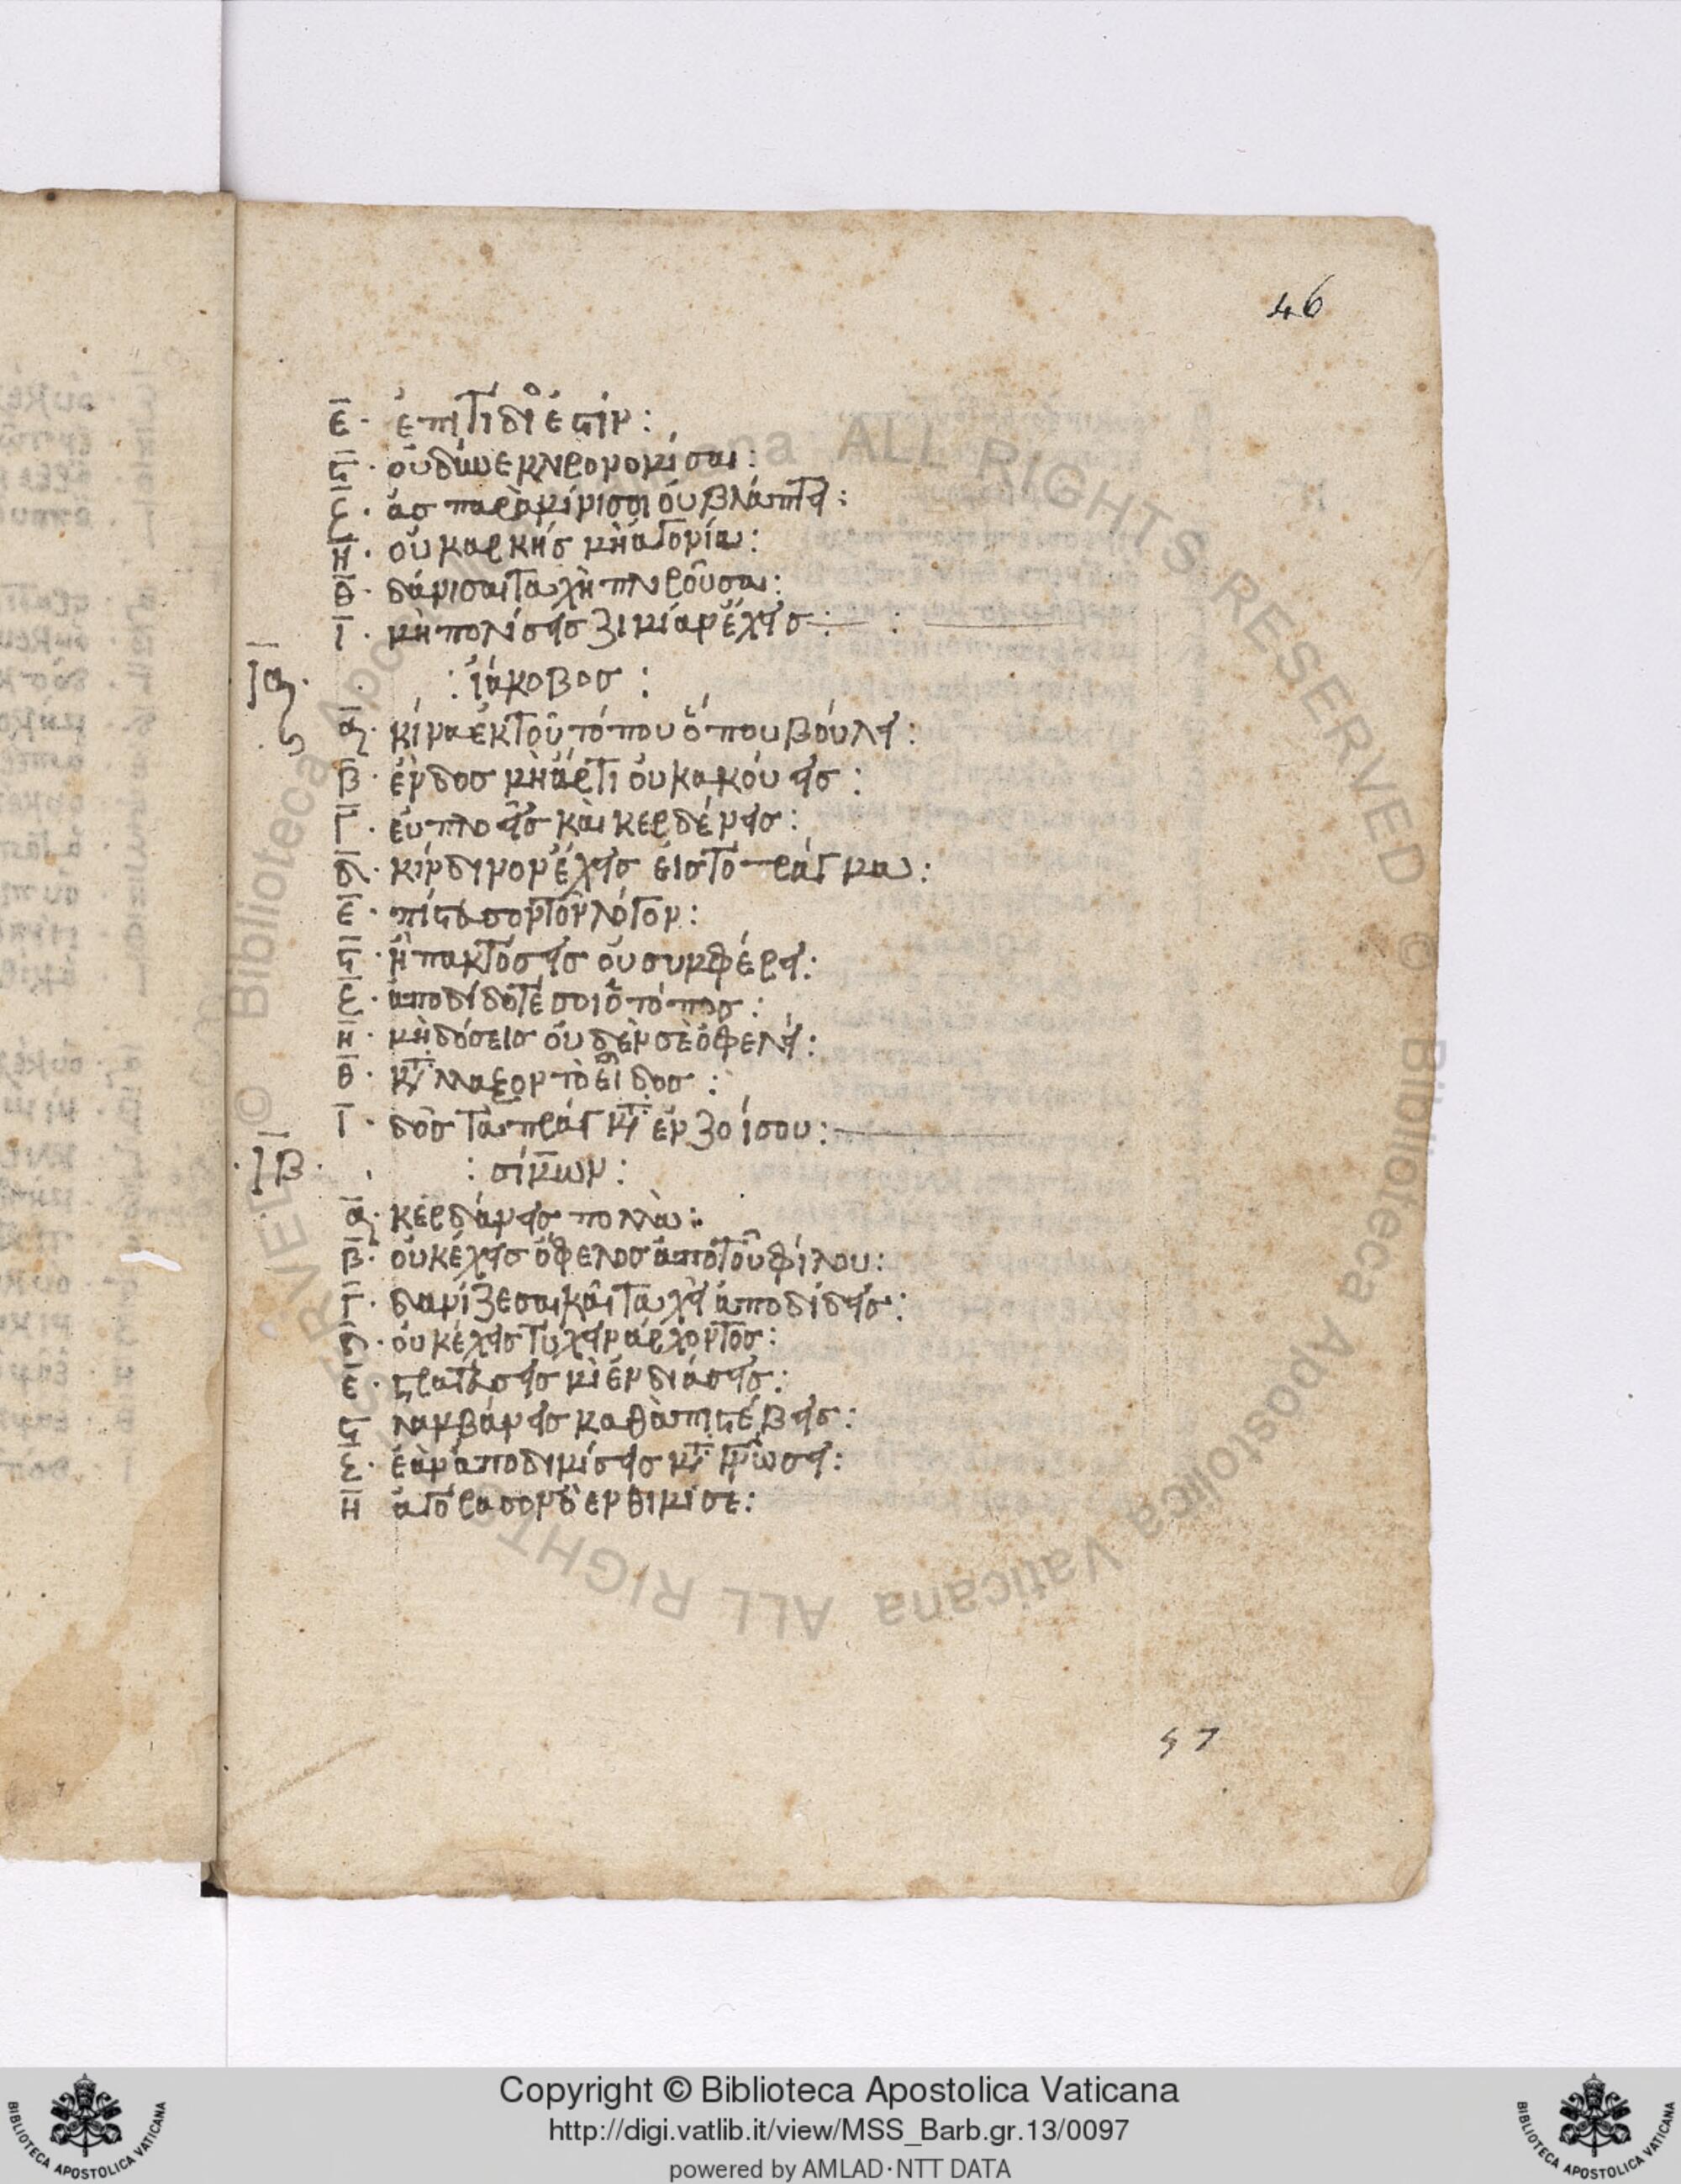 46
ε · ἐπιτιδι ἐστίν :
ϛ · οὐδύνε κλρονομίσαι :
ζ · ἀσ παρὰμίνισαι οὐβλάπτει :
η · οὐκαρκῆσ μὴἀγορία :
θ · δάνισαι ταχὴ πλροῦσαι :
ι · μὴπολίσεις ζιμίαν ἔχεισ :
ια · : ἰάκοβοσ :
α · κίνα ἐκτοῦ τόπου ὅπου βούλει :
β · ἔνδοσ μὴἄρτι οὐκακούεισ :
γ · εὐπλοεῖσ καὶ κερδένεισ :
δ · κίνδινον ἔχεισ εἰστὸ πράγμα :
ε · πίστευσοντὸν λόγον :
ϛ · ἢπακτόσεισ οὐσυμφέρει :
ζ · ἀποδίδοτέ σοι ὁ τόποσ :
η · μὴδόσεισ οὐδὲνσὲ ὀφελεῖ :
θ · μτ λλαξον τὸ εἶδοσ :
ι · δὸσ τὰ πράγμτ ἐν ζοίσου :
ιβ · : σίμων :
α · κερδάνεισ πολλὰ :
β · οὐκέχεισ ὄφελοσ ἀπὸτοῦ φίλου :
γ · δανίζεσαι καὶ ταχεῖ ἀποδίδεισ :
δ · οὐκέχεισ τύχειν ἄρχοντοσ :
ε · στρατεύσεισ μὶ ἐνδιάσεισ :
ϛ λαμβάνεισ καθὰ πιστέβεισ :
ζ · ἐὰν ἀποδιμίσεισ μτ
η ἀγόρασον δ ενθιμίσε :
47
Copyright © Biblioteca Apostolica Vaticana
http://digi.vatlib.it/view/MSS_Barb.gr.13/0097
powered by AMLAD·NTT DATA
BIBLIOTECA APOSTOLICA VATICANA
BIBLIOTECA APOSTOLICA VATICANA
© Biblioteca Apostolicana ALL RIGHTS RESERVED © Biblioteca Apostolica Vaticana ALL RIGHTS RESERVED